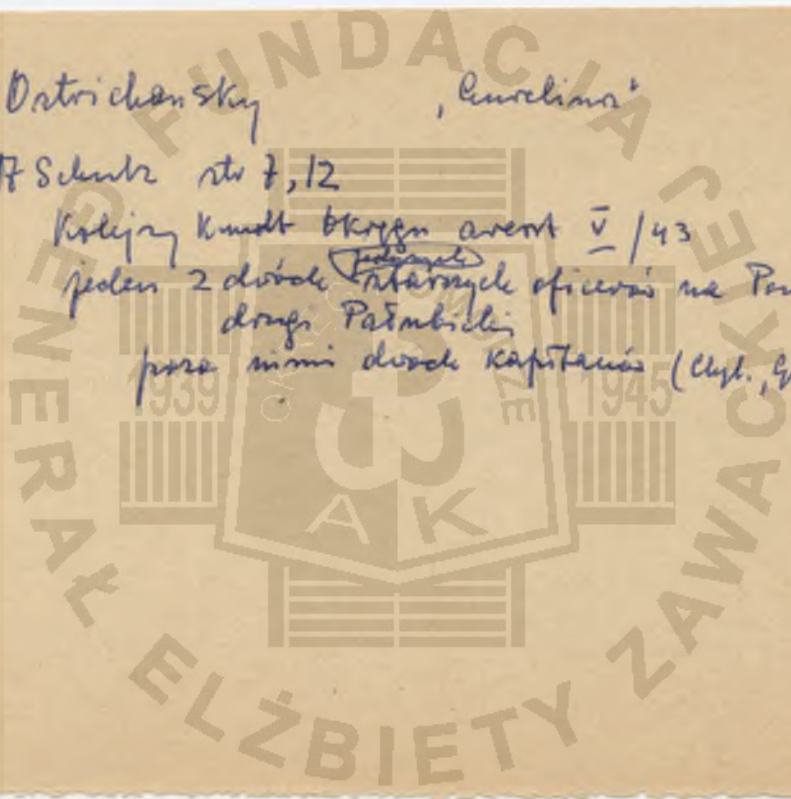 Ostrichansky
Schulz str 7, 12
Kolejny Kmdt Okręgu areszt V /43
jeden z dwóch jedynych starszych oficerów na
drugi Pałubicki
poza nimi dwóch kapitanów (Chyl.,
FUNDACJA GENERAŁ ELŻBIETY ZAWACKIEJ
1939
1945
AK